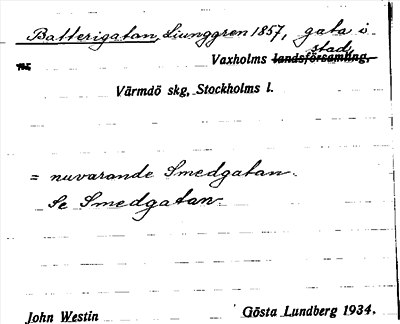 Batterigatan, Ljunggren 1857, gata i
stad,
Vaxholms landsförsamling,
Värmdö skg, Stockholms l.
= nuvarande Smedgatan.
Se Smedgatan.
John Westin Gösta Lundberg 1934.